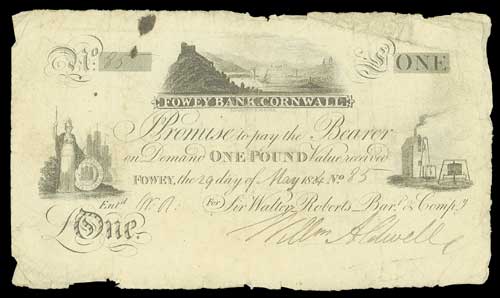 No. 85 ONE
FOWEY BANK CORNWALL
I Promise to pay the Bearer
on Demand ONE POUND Value received
FOWEY, the 29 day of May 1824 No 85
Entd. For Sir Walter Roberts Bart. & Compy
£One. Willm Aldwell